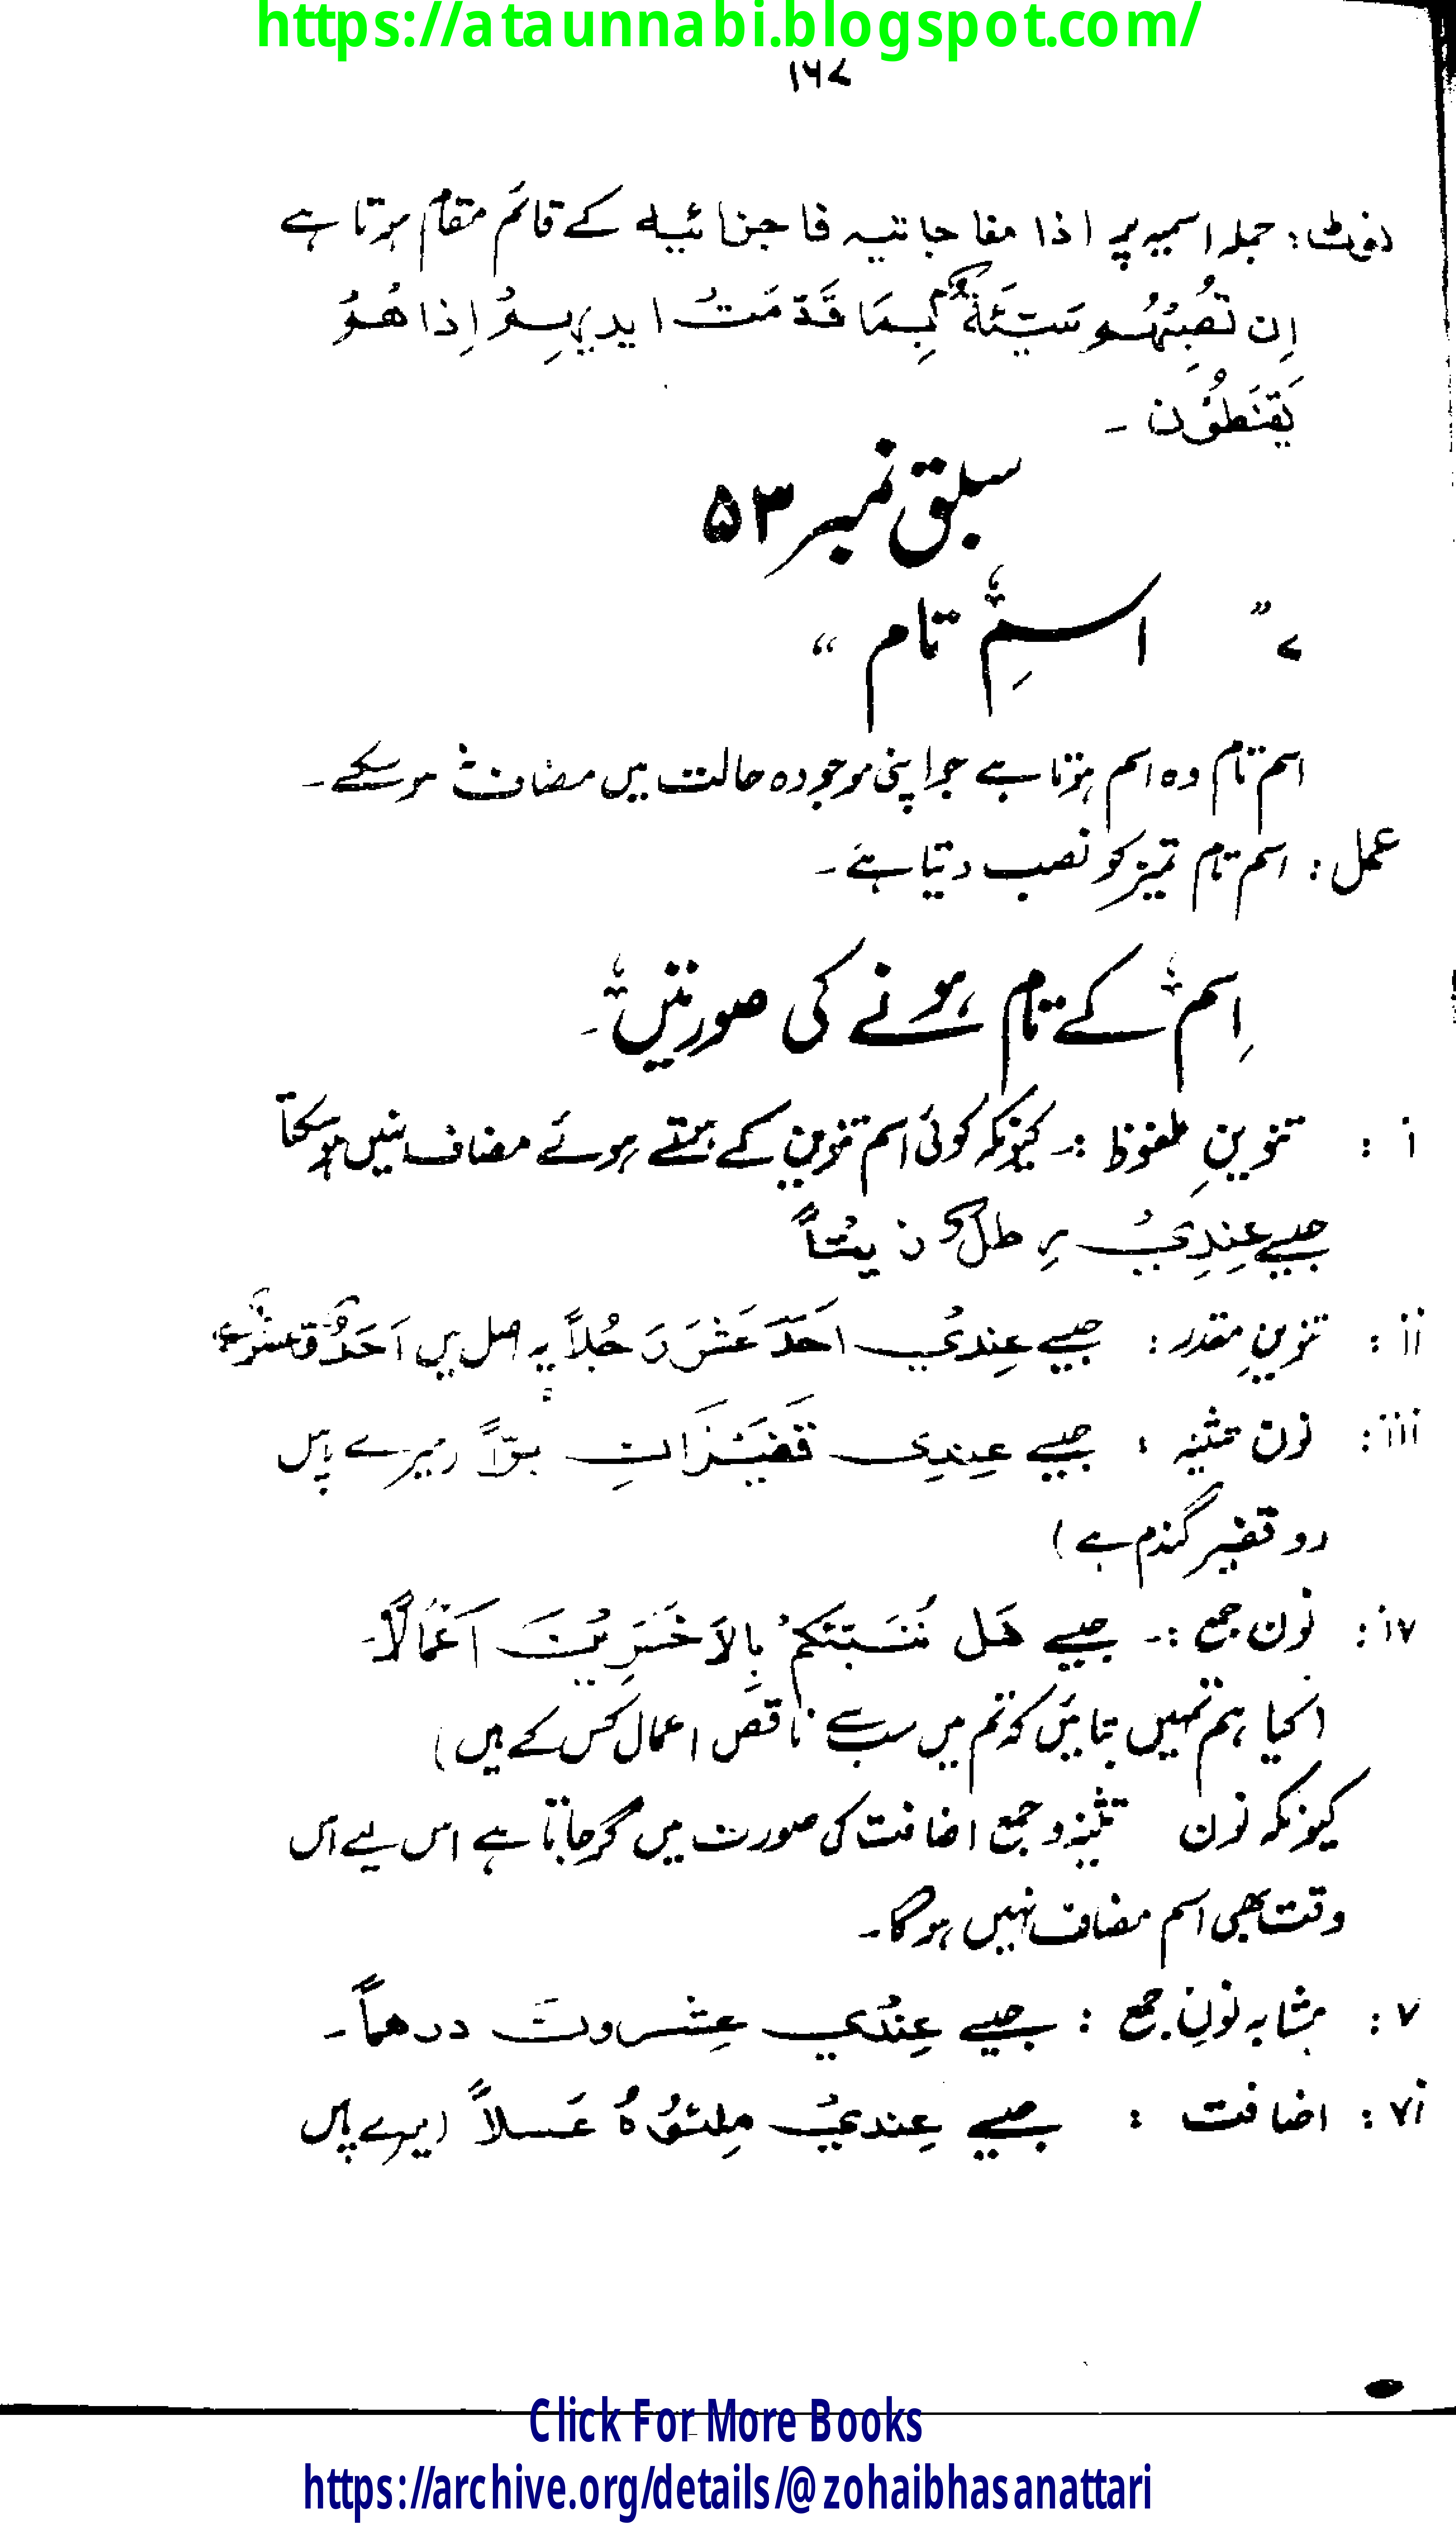 https://ataunnabi.blogspot.com/
۱۶۷
نوٹ: جملہ اسمیہ پر اذا مفاجاتیہ فا جزائیہ کے قائم مقام ہوتا ہے
اِن تُصِبْہُمو سَیِّئَۃٌ بِمَا قَدَّمَتُ ایدیہِمُ اِذا ھُمُ
یَقنَطُوُن ۔
سبق نمبر ۵۳
۷ ” اسمِ تام “
اسم تام وہ اسم ہوتا ہے جو اپنی موجودہ حالت میں مضاف نہ ہوسکے ۔
عمل: اسم تام تمیز کو نصب دیتا ہے ۔
اِسم کے تام ہونے کی صورتیں ۔
i : تنوینِ ملفوظ :۔ کیونکہ کوئی اسم تنوین کے ہوتے ہوئے مضاف نہیں ہوسکتا
جیسے عِنِدِیُ رِطلٌ زیتاً
ii : تنوینِ مقدر : جیسے عِندیُ احَدَ عَشَرَ رَجُلاً یہ اصل میں اَحَدٌ وَعشرٌ ہے
iii : نون تثنیہ : جیسے عِندِی قَفیَزَانِ بُرّاً (میرے پاس
دو قفیز گندم ہے)
iv : نون جمع :۔ جیسے ھَل نُنَبِّئُکمُ بِالاَخسَرِیُنَ اَعمَالاً۔
(کیا ہم تمہیں بتائیں کہ تم میں سب سے ناقص اعمال کس کے ہیں)
کیونکہ نون تثنیہ و جمع اضافت کی صورت میں گرجاتا ہے اس لیے اس
وقت بھی اسم مضاف نہیں ہوگا۔
v : مشابہ نونِ جمع : جیسے عِنُدی عِشرونَ درھماً ۔
vi : اضافت : جیسے عِندیُ مِلئُوُہُ عَسلاً (میرے پاس
Click For More Books
https://archive.org/details/@zohaibhasanattari